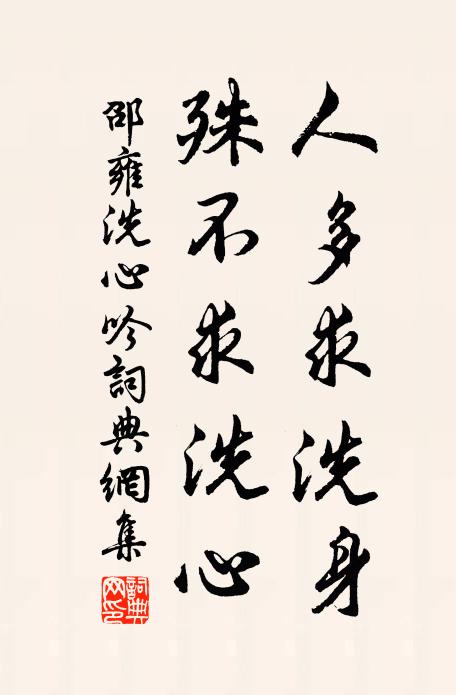 人多求洗身
殊不求洗心
邵雍洗心吟詞典網集
詞典網印